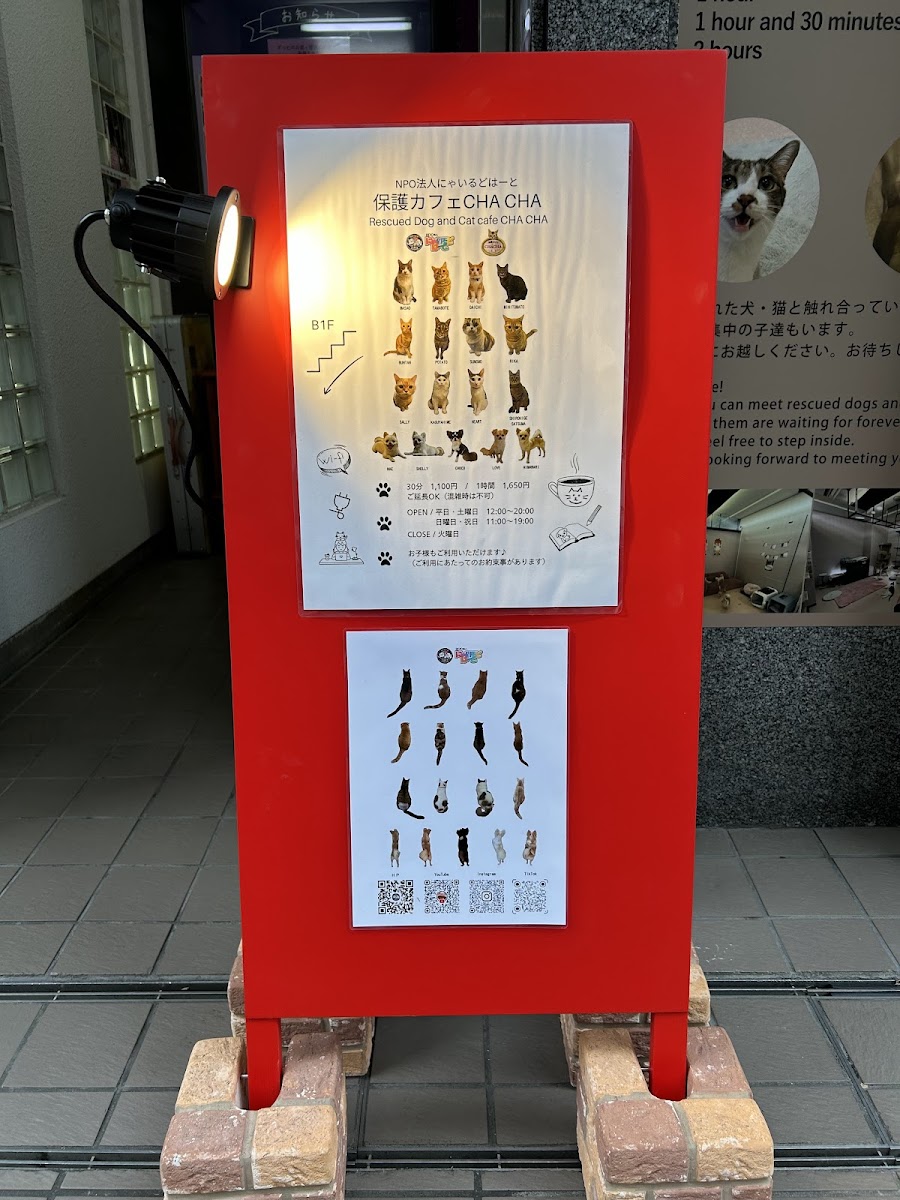 お知らせ
1 hour and 30 minutes
2 hours
NPO法人にゃいるどはーと
保護カフェCHA CHA
Rescued Dog and Cat cafe CHA CHA
B1F
SALLY
HEART
POTATO
SHELLY
CHOCO
LOVE
Wi-Fi
30分 1,100円 / 1時間 1,650円
ご延長OK(混雑時は不可)
OPEN / 平日・土曜日 12:00〜20:00
日曜日・祝日 11:00〜19:00
CLOSE / 火曜日
お子様もご利用いただけます♪
(ご利用にあたってのお約束事があります)
れた犬・猫と触れ合ってい
集中の子達もいます。
にお越しください。お待ちし
e!
u can meet rescued dogs an
them are waiting for foreve
eel free to step inside.
ooking forward to meeting y
H P
YouTube
Instagram
TikTok